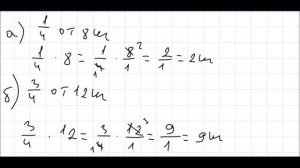 а) 1/4 от 8 ш
1/4 · 8 = 1/4 1 · 8 2/1 = 2/1 = 2 ш
б) 3/4 от 12 ш
3/4 · 12 = 3/4 1 · 12 3/1 = 9/1 = 9 ш